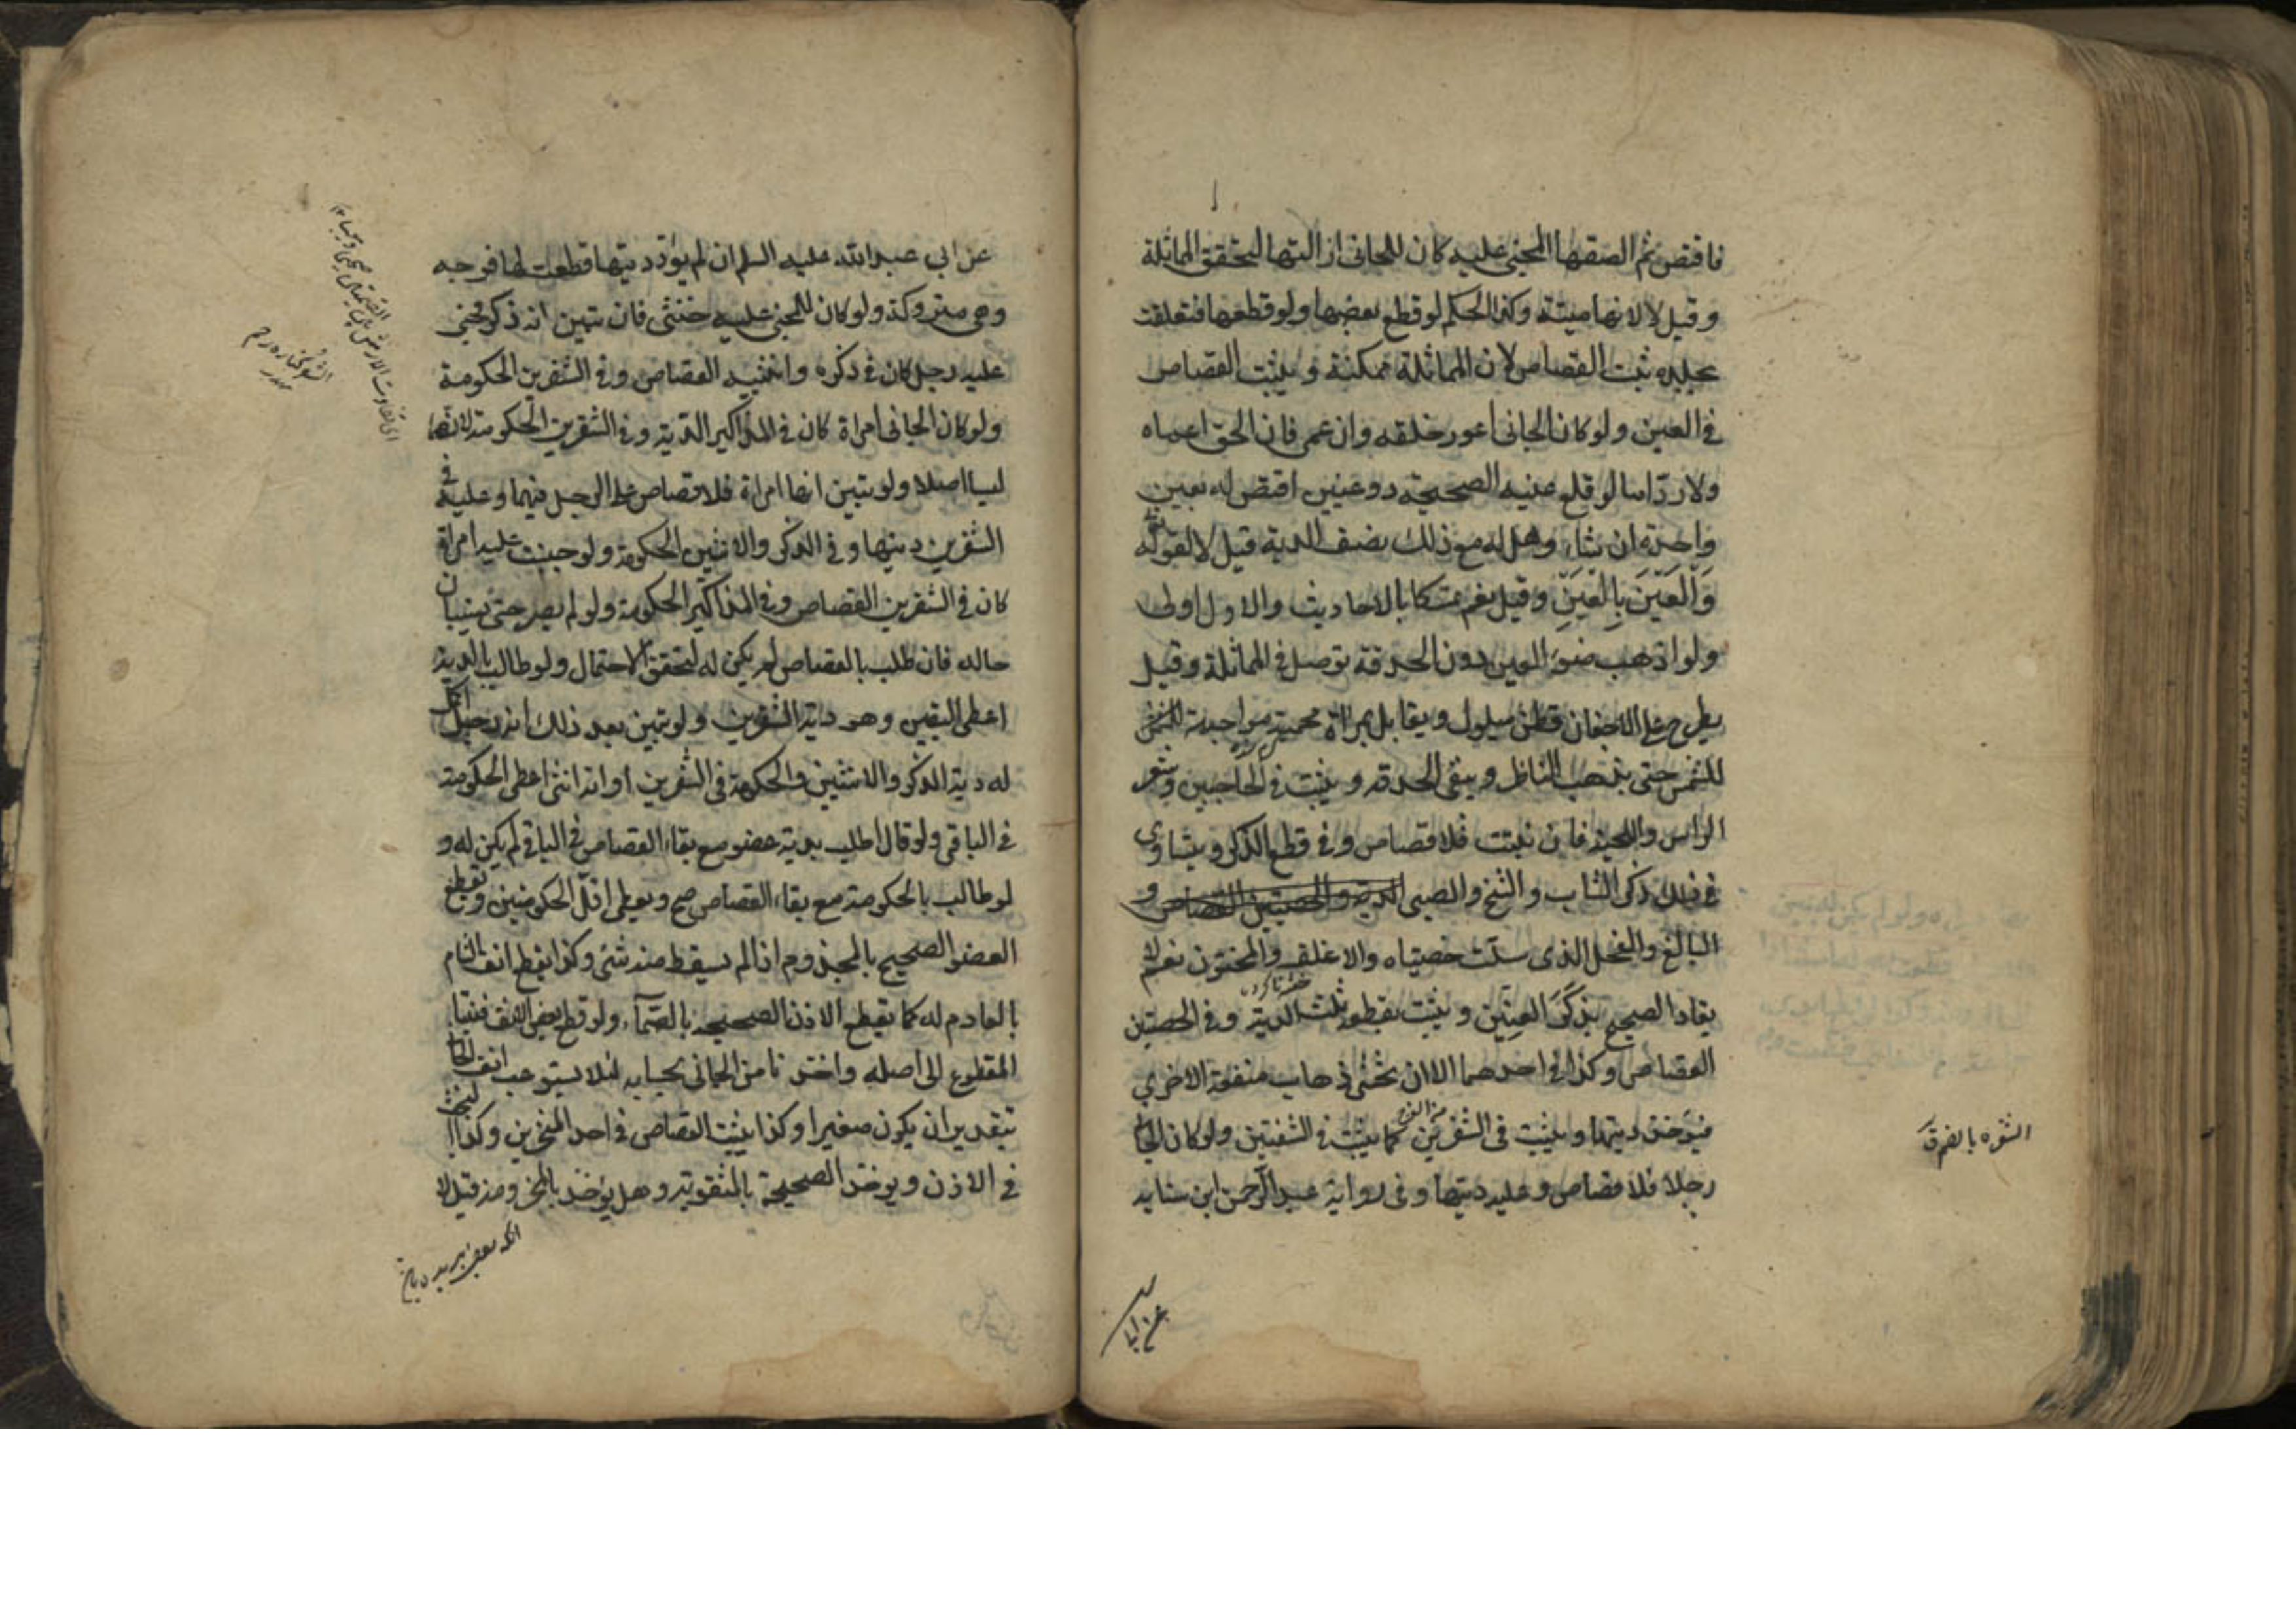 فاقتص ثم الصقها المجنى عليه كان للجانى ازالتها ليتحقق المماثلة
وقيل لا لانها ميتة وكذا الحكم لو قطع بعضها ولو قطعها فتعلقت
بجلده ثبت القصاص لان المماثلة ممكنة ويثبت القصاص
فى العين ولو كان الجانى اعور خلقه وان عمى فان الحق اعماه
ولا رد اما لو قلع عينه الصحيحة ذو عينين اقتص له بعين
واحدة ان شاء وهل له مع ذلك نصف الدية قيل لا لقوله تع
وَالْعَيْنَ بِالْعَيْنِ وقيل نعم تمسكا بالاحاديث والاول اولى
ولو اذهب ضوء العين دون الحدقة توصل فى المماثلة وقيل
يطرح على الاجفان قطن مبلول ويقابل بمراة محمية مواجهة للشمس
للشمس حتى يذهب الناظر ويبقى الحدقه ويثبت فى الحاجبين وشعر
الراس واللحية فان نبتت فلا قصاص وفى قطع الذكر ويتساوى
فى ذلك ذكر الشاب والشيخ والصبى الدية والخصيتين القصاص و
البالغ والفحل الذى سلت خصيتاه والاغلف والمختون نعم لا
يقاد الصحيح بذكر العِنّين ويثبت بقطعه ثلث الدية وفى الخصيتين
القصاص وكذا فى احدهما الا ان يخشى ذهاب منفعة الاخرى
فيؤخذ ديتها ويثبت فى الشفرين كما يثبت فى الشفتين ولو كان الجانى
من الفرج
رجلا فلا قصاص وعليه ديتها وفى رواية عبد الرحمن ابن سيابه
الشفره بالضم
عن ابى
عن ابي عبد الله عليه السلم ان لم يؤد ديتها قطعت لها فرجه
وهى متروكة ولو كان المجنى عليه خنثى فان تبين انه ذكر فجنى
عليه رجل كان فى ذكره وانثييه القصاص وفى الشفرين الحكومة
ولو كان الجانى امراة كان فى المذاكير الدية وفى الشفرين الحكومة لانهما
ليسا اصلا ولو تبين انها امراة فلا قصاص على الرجل فيهما وعليه فى
الشفرين ديتها وفى الذكر والانثيين الحكومة ولو جنت عليه امراة
كان فى الشفرين القصاص وفى المذاكير الحكومة ولو لم يصبر حتى يتبيان
حاله فان طلب بالقصاص لم يكن له لتحقق الاحتمال ولو طالب بالدية
اعطى اليقين وهو دية الشفرين ولو تبين بعد ذلك انه رجل اكمل
له دية الذكر والانثيين والحكومة فى الشفرين او انه انثى اعطى الحكومة
فى الباقى ولو قال اطلب بدية عضو مع بقاء القصاص فى الباقى لم يكن له و
لو طالب بالحكومة مع بقاء القصاص صح ويعطى اقل الحكومتين ويقطع
العضو الصحيح بالمجذوم اذا لم يسقط منه شئ وكذا يقطع انف الشام
بالعادم له كما تقطع الاذن الصحيحه بالصمآء ولو قطع بعض الانف نسبنا
المقطوع الى اصله واخذنا من الجانى بحسابه لئلا يستوعب انف الجانى
بتقدير ان يكون صغيرا وكذا يثبت القصاص فى احد المنخرين وكذا البحث
فى الاذن ويوخذ الصحيحة بالمثقوبة وهل يؤخذ بالمخرومة قيل لا